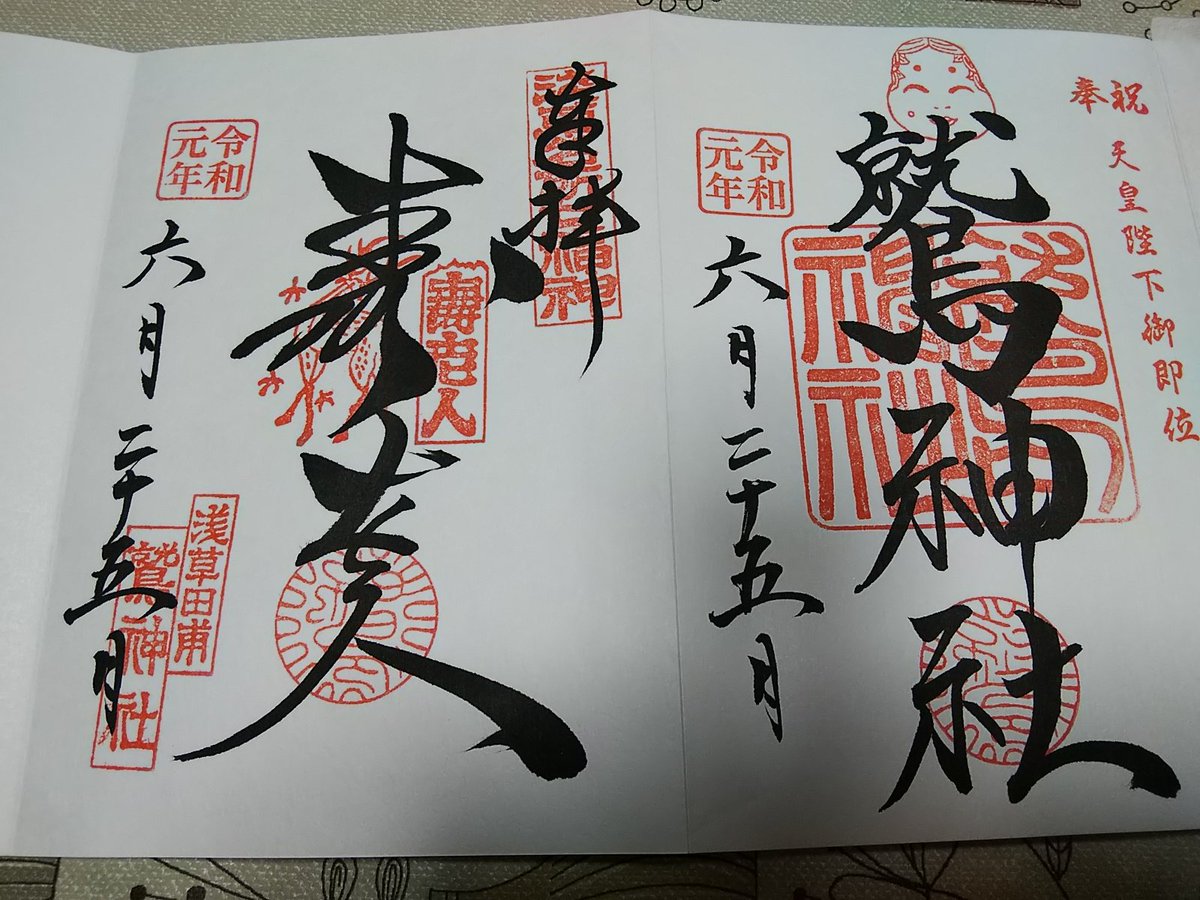 奉祝
天皇陛下御即位
鷲神社
令和元年
六月二十五日
奉拝
壽老人
寿老人
令和元年
六月二十五日
浅草田甫
鷲神社